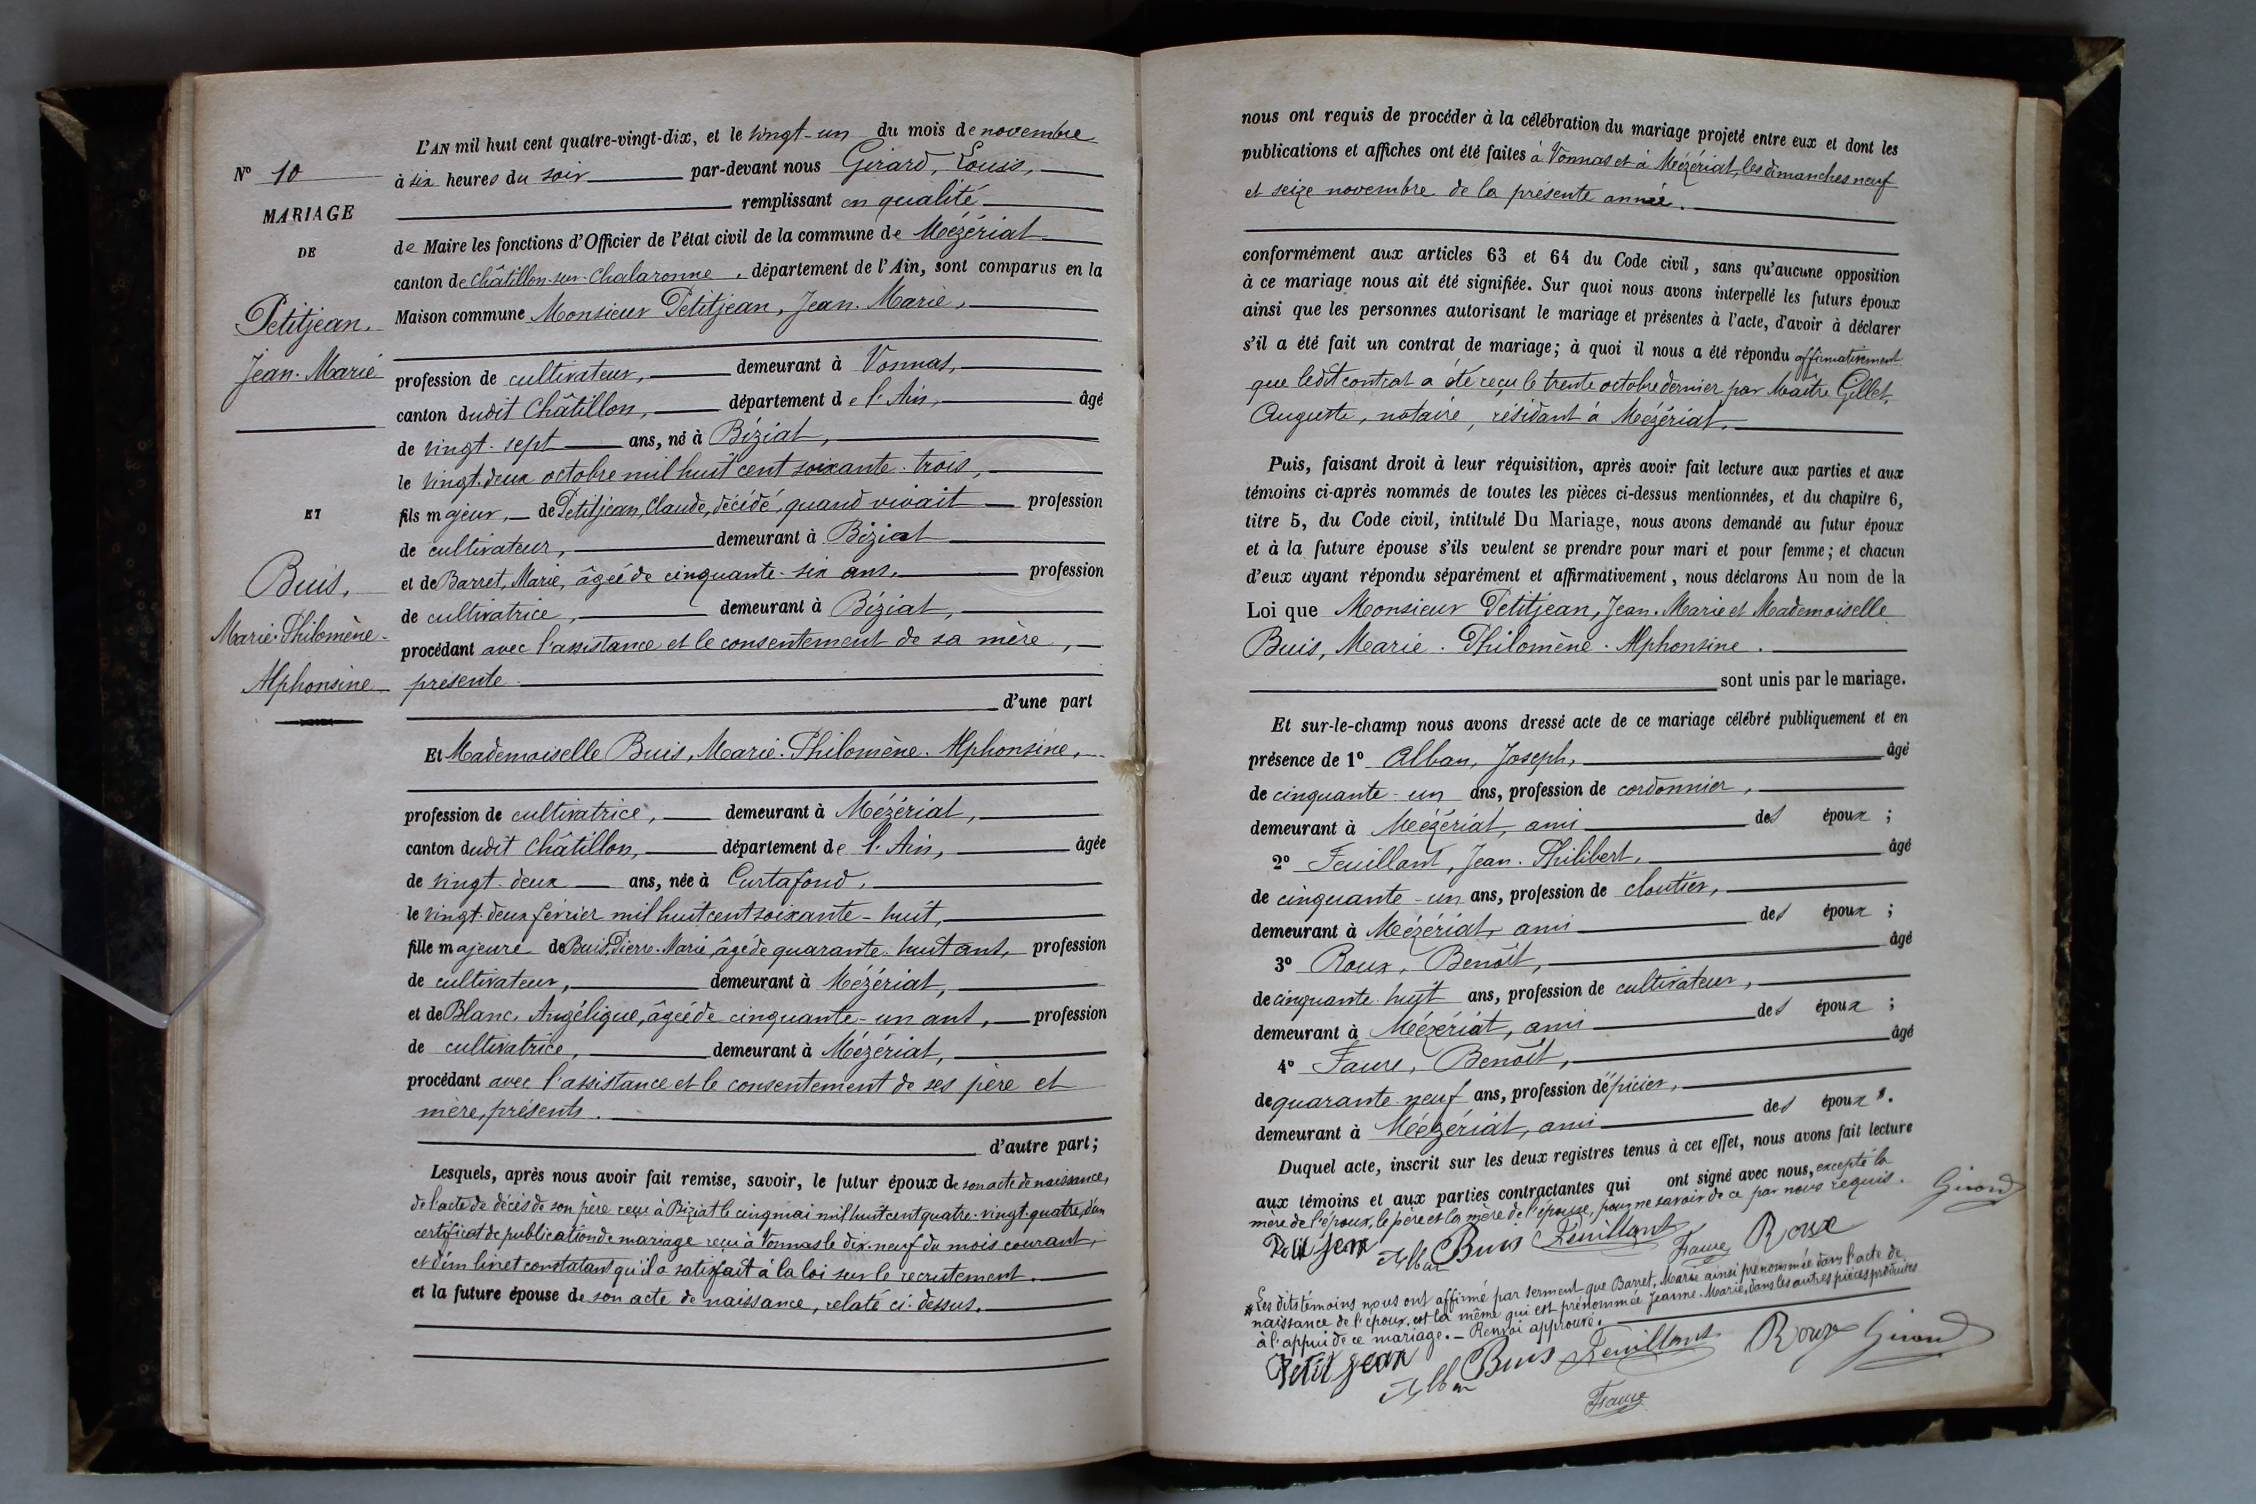 L'AN mil huit cent quatre-vingt-dix, et le vingt-un du mois de novembre
à six heures du soir par-devant nous Girard, Louis,
remplissant en qualité
de Maire les fonctions d'Officier de l'état civil de la commune de Mézériat
canton de Châtillon-sur-Chalaronne, département de l'Ain, sont comparus en la
Maison commune Monsieur Petitjean, Jean-Marie,
profession de cultivateur, demeurant à Vonnas,
canton dudit Châtillon, département de l'Ain, âgé
de vingt-sept ans, né à Béziat,
le vingt-deux octobre mil huit cent soixante-trois,
fils majeur, de Petitjean, Claude, décédé, quand vivait profession
de cultivateur, demeurant à Biziat
et de Barret, Marie, âgée de cinquante-six ans, profession
de cultivatrice, demeurant à Biziat,
procédant avec l'assistance et le consentement de sa mère,
présente.
d'une part
Et Mademoiselle Buis, Marie-Philomène-Alphonsine,
profession de cultivatrice, demeurant à Mézériat,
canton dudit Châtillon, département de l'Ain, âgée
de vingt-deux ans, née à Curtafond,
le vingt-deux février mil huit cent soixante-huit,
fille majeure de Buis, Pierre-Marie, âgé de quarante-huit ans, profession
de cultivateur, demeurant à Mézériat,
et de Blanc, Angélique, âgée de cinquante-un ans, profession
de cultivatrice, demeurant à Mézériat,
procédant avec l'assistance et le consentement de ses père et
mère, présents.
d'autre part;
Lesquels, après nous avoir fait remise, savoir, le futur époux de son acte de naissance,
de l'acte de décès de son père reçu à Biziat le cinq mai mil huit cent quatre-vingt-quatre, d'un
certificat de publication de mariage reçu à Vonnas le dix-neuf du mois courant,
et d'un livret constatant qu'il a satisfait à la loi sur le recrutement.
et la future épouse de son acte de naissance, relaté ci-dessus.
N° 10
MARIAGE
DE
Petitjean,
Jean-Marie
ET
Buis,
Marie-Philomène-
Alphonsine
nous ont requis de procéder à la célébration du mariage projeté entre eux et dont les
publications et affiches ont été faites à Vonnas et à Mézériat, les dimanches neuf
et seize novembre de la présente année.
conformément aux articles 63 et 64 du Code civil, sans qu'aucune opposition
à ce mariage nous ait été signifiée. Sur quoi nous avons interpellé les futurs époux
ainsi que les personnes autorisant le mariage et présentes à l'acte, d'avoir à déclarer
s'il a été fait un contrat de mariage; à quoi il nous a été répondu affirmativement
que ledit contrat a été reçu le trente octobre dernier par Maître Gillet,
Auguste, notaire, résidant à Mézériat.
Puis, faisant droit à leur réquisition, après avoir fait lecture aux parties et aux
témoins ci-après nommés de toutes les pièces ci-dessus mentionnées, et du chapitre 6,
titre 5, du Code civil, intitulé Du Mariage, nous avons demandé au futur époux
et à la future épouse s'ils veulent se prendre pour mari et pour femme; et chacun
d'eux ayant répondu séparément et affirmativement, nous déclarons Au nom de la
Loi que Monsieur Petitjean, Jean-Marie et Mademoiselle
Buis, Marie-Philomène-Alphonsine.
sont unis par le mariage.
Et sur-le-champ nous avons dressé acte de ce mariage célébré publiquement et en
présence de 1° Alban, Joseph, âgé
de cinquante-un ans, profession de cordonnier,
demeurant à Mézériat, ami des époux;
2° Feuillant, Jean-Philibert, âgé
de cinquante-un ans, profession de cloutier,
demeurant à Mézériat, ami des époux;
3° Roux, Benoît, âgé
de cinquante-huit ans, profession de cultivateur,
demeurant à Mézériat, ami des époux;
4° Faure, Benoît, âgé
de quarante-neuf ans, profession d'épicier,
demeurant à Mézériat, ami des époux*.
Duquel acte, inscrit sur les deux registres tenus à cet effet, nous avons fait lecture
aux témoins et aux parties contractantes qui ont signé avec nous, excepté la
mère de l'époux, le père et la mère de l'épouse, pour ne savoir de ce par nous requis.
Petit jean Alban Buis Feuillant Faure Roux Girard
*Les dits témoins nous ont affirmé par serment que Barret, Marie ainsi prénommée dans l'acte de
naissance de l'époux, est la même qui est prénommée Jeanne-Marie, dans les autres pièces produites
à l'appui de ce mariage. - Renvoi approuvé.
Petit jean Alban Buis Feuillant Roux Girard
Faure